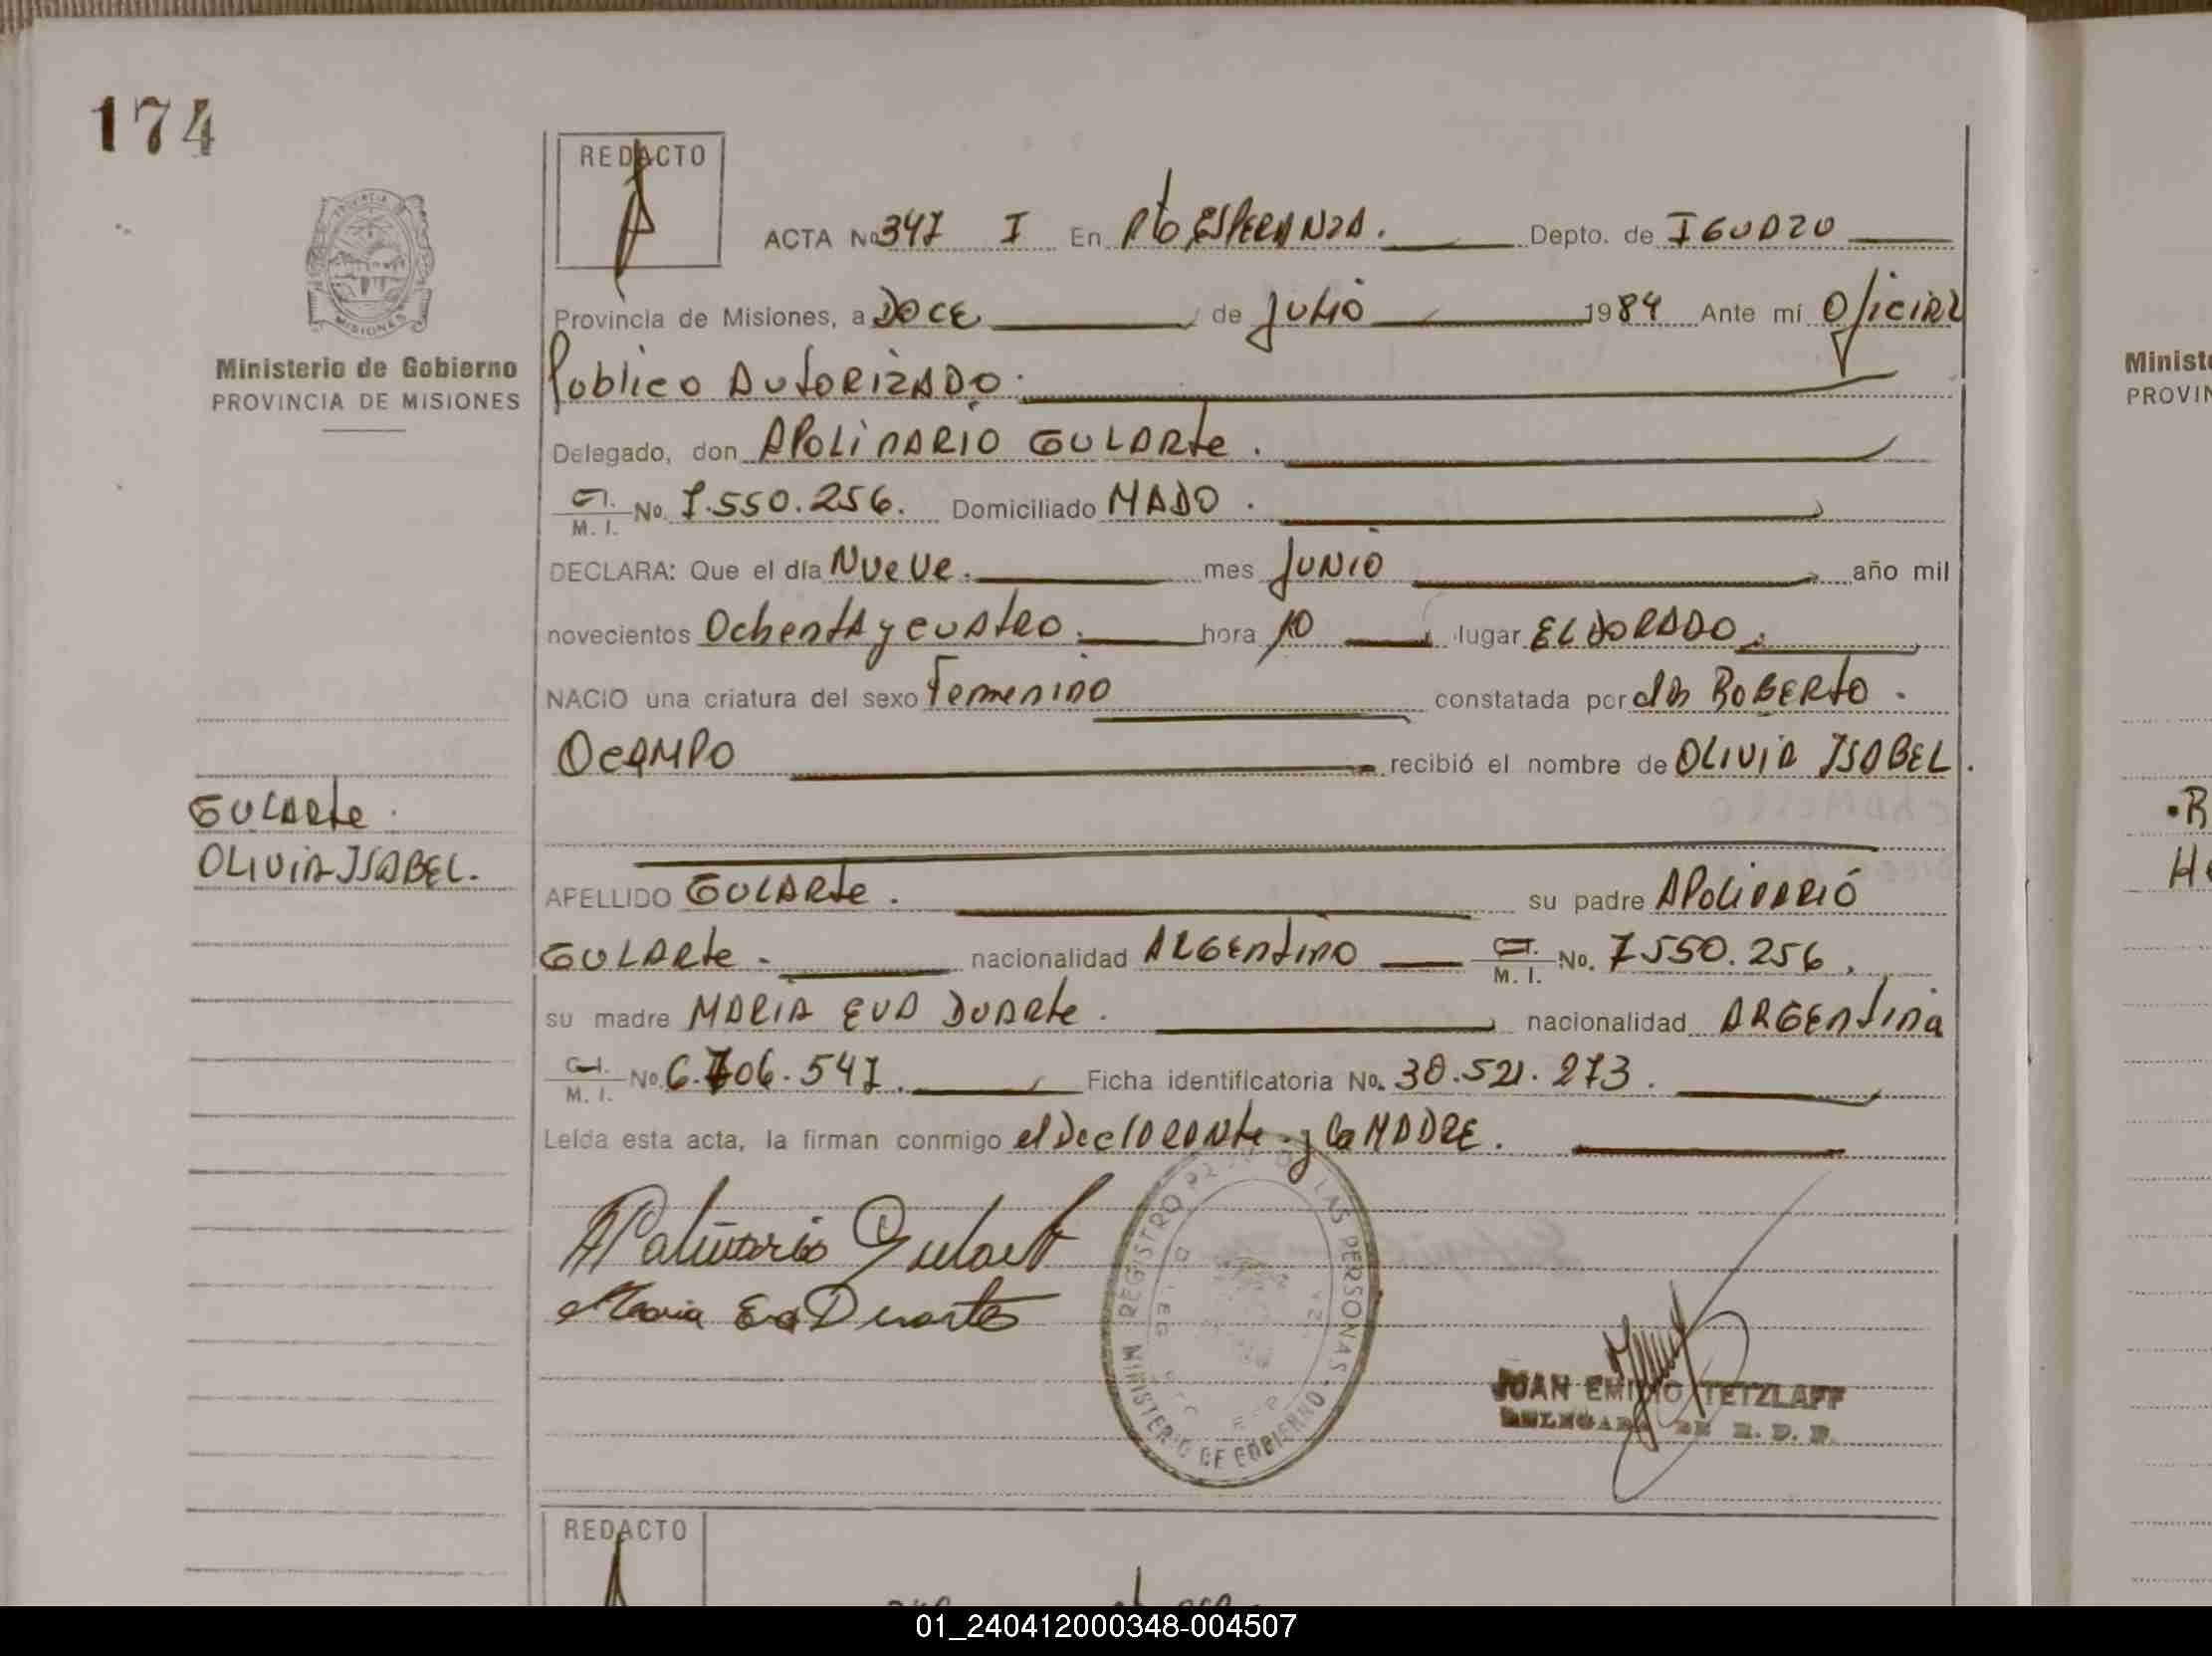 174
REDACTO
ACTA No 347 I En Pto ESPERANZA. Depto. de IGUAZU
Provincia de Misiones, a DOCE de JULIO 1984 Ante mí Oficial
Publico AUTORIZADO.
Delegado, don APOLINARIO GULARte.
C.I. M. I. No. 7.550.256. Domiciliado MADO.
DECLARA: Que el día Nueve. mes JUNIO año mil
novecientos OchentA y cuAtro. hora 10 lugar ELDORADO.
NACIO una criatura del sexo Femenino constatada por dr ROBERto.
OCAMPO recibió el nombre de OLIVIA ISABEL.
APELLIDO GULARte. su padre APOLINARIO
GULARte. nacionalidad ARGENtINO C.I. M. I. No. 7550.256.
su madre MARIA EVA DUARte. nacionalidad ARGENtina
C.I. M. I. No. 6.706.547. Ficha identificatoria No. 30.521.273.
Leída esta acta, la firman conmigo el DeclARANte y la MADRE.
Ministerio de Gobierno
PROVINCIA DE MISIONES
GULARte.
OLIVIA ISABEL.
APolinario Gularte
Maria Eva Duarte
REGISTRO DE LAS PERSONAS
MINISTERIO DE GOBIERNO
JUAN EMILIO TETZLAFF
DELEGADO DE R. D. P.
REDACTO
Minist
PROVIN
01_240412000348-004507